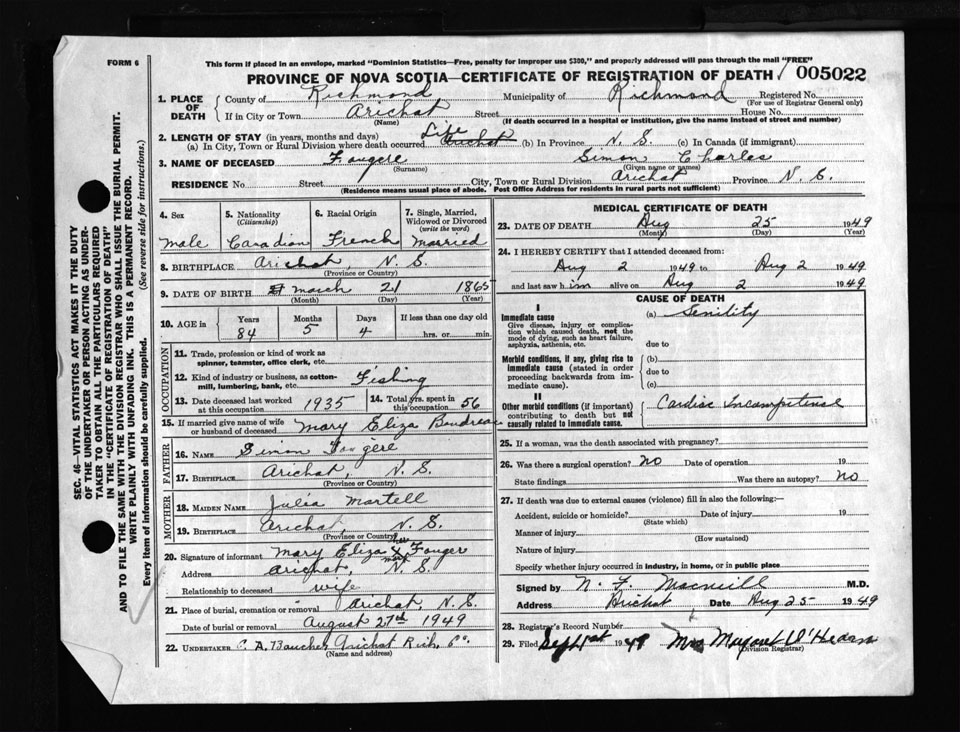 FORM 6
This form if placed in an envelope, marked "Dominion Statistics—Free, penalty for improper use $300," and properly addressed will pass through the mail "FREE"
PROVINCE OF NOVA SCOTIA—CERTIFICATE OF REGISTRATION OF DEATH 005022
1. PLACE OF DEATH { County of Richmond Municipality of Richmond Registered No.
(For use of Registrar General only)
If in City or Town Arichat Street House No.
(Name) (If death occurred in a hospital or institution, give the name instead of street and number)
2. LENGTH OF STAY (in years, months and days)
(a) In City, Town or Rural Division where death occurred Life Arichat (b) In Province N. S. (c) In Canada (if immigrant)
3. NAME OF DECEASED Fougere Simon Charles
(Surname) (Given name or names)
RESIDENCE No. Street City, Town or Rural Division Arichat Province N. S.
(Residence means usual place of abode. Post Office Address for residents in rural parts not sufficient)
4. Sex Male
5. Nationality (Citizenship) Canadian
6. Racial Origin French
7. Single, Married, Widowed or Divorced (write the word) Married
8. BIRTHPLACE Arichat, N. S.
(Province or Country)
9. DATE OF BIRTH March 21 1865
(Month) (Day) (Year)
10. AGE in Years 84 Months 5 Days 4 If less than one day old hrs. or min.
OCCUPATION
11. Trade, profession or kind of work as spinner, teamster, office clerk, etc.
12. Kind of industry or business, as cotton-mill, lumbering, bank, etc. Fishing
13. Date deceased last worked at this occupation 1935
14. Total yrs. spent in this occupation 56
15. If married give name of wife or husband of deceased Mary Eliza Boudreau
FATHER
16. Name Simon Fougère
17. Birthplace Arichat, N. S.
(Province or Country)
MOTHER
18. Maiden Name Julia Martell
19. Birthplace Arichat, N. S.
(Province or Country)
20. Signature of informant Mary Eliza her X mark Fouger
Address Arichat, N. S.
Relationship to deceased wife
21. Place of burial, cremation or removal Arichat, N. S.
Date of burial or removal August 27th 1949
22. UNDERTAKER C. A. Boucher Arichat Rich. Co.
(Name and address)
MEDICAL CERTIFICATE OF DEATH
23. DATE OF DEATH Aug 25 1949
(Month) (Day) (Year)
24. I HEREBY CERTIFY that I attended deceased from:
Aug 2 1949 to Aug 2 1949
and last saw him alive on Aug 2 1949
CAUSE OF DEATH
I
Immediate cause (a) Senility
Give disease, injury or complication which caused death, not the mode of dying, such as heart failure, asphyxia, asthenia, etc.
due to
Morbid conditions, if any, giving rise to immediate cause (stated in order proceeding backwards from immediate cause).
(b)
due to
(c)
II
Other morbid conditions (if important) contributing to death but not causally related to immediate cause. Cardiac Incompetense
25. If a woman, was the death associated with pregnancy?
26. Was there a surgical operation? No Date of operation 19
State findings Was there an autopsy? No
27. If death was due to external causes (violence) fill in also the following:—
Accident, suicide or homicide? Date of injury 19
(State which)
Manner of injury
(How sustained)
Nature of injury
Specify whether injury occurred in industry, in home, or in public place
Signed by N. F. Macneill M.D.
Address Arichat Date Aug 25 1949
28. Registrar's Record Number
29. Filed Sept 1st 1949 Mrs Margaret O'Hearn
(Division Registrar)
SEC. 46—VITAL STATISTICS ACT MAKES IT THE DUTY
OF THE UNDERTAKER OR PERSON ACTING AS UNDER-
TAKER TO OBTAIN ALL THE PARTICULARS REQUIRED
IN THE "CERTIFICATE OF REGISTRATION OF DEATH"
AND TO FILE THE SAME WITH THE DIVISION REGISTRAR WHO SHALL ISSUE THE BURIAL PERMIT.
WRITE PLAINLY WITH UNFADING INK. THIS IS A PERMANENT RECORD.
Every item of information should be carefully supplied. (See reverse side for instructions.)